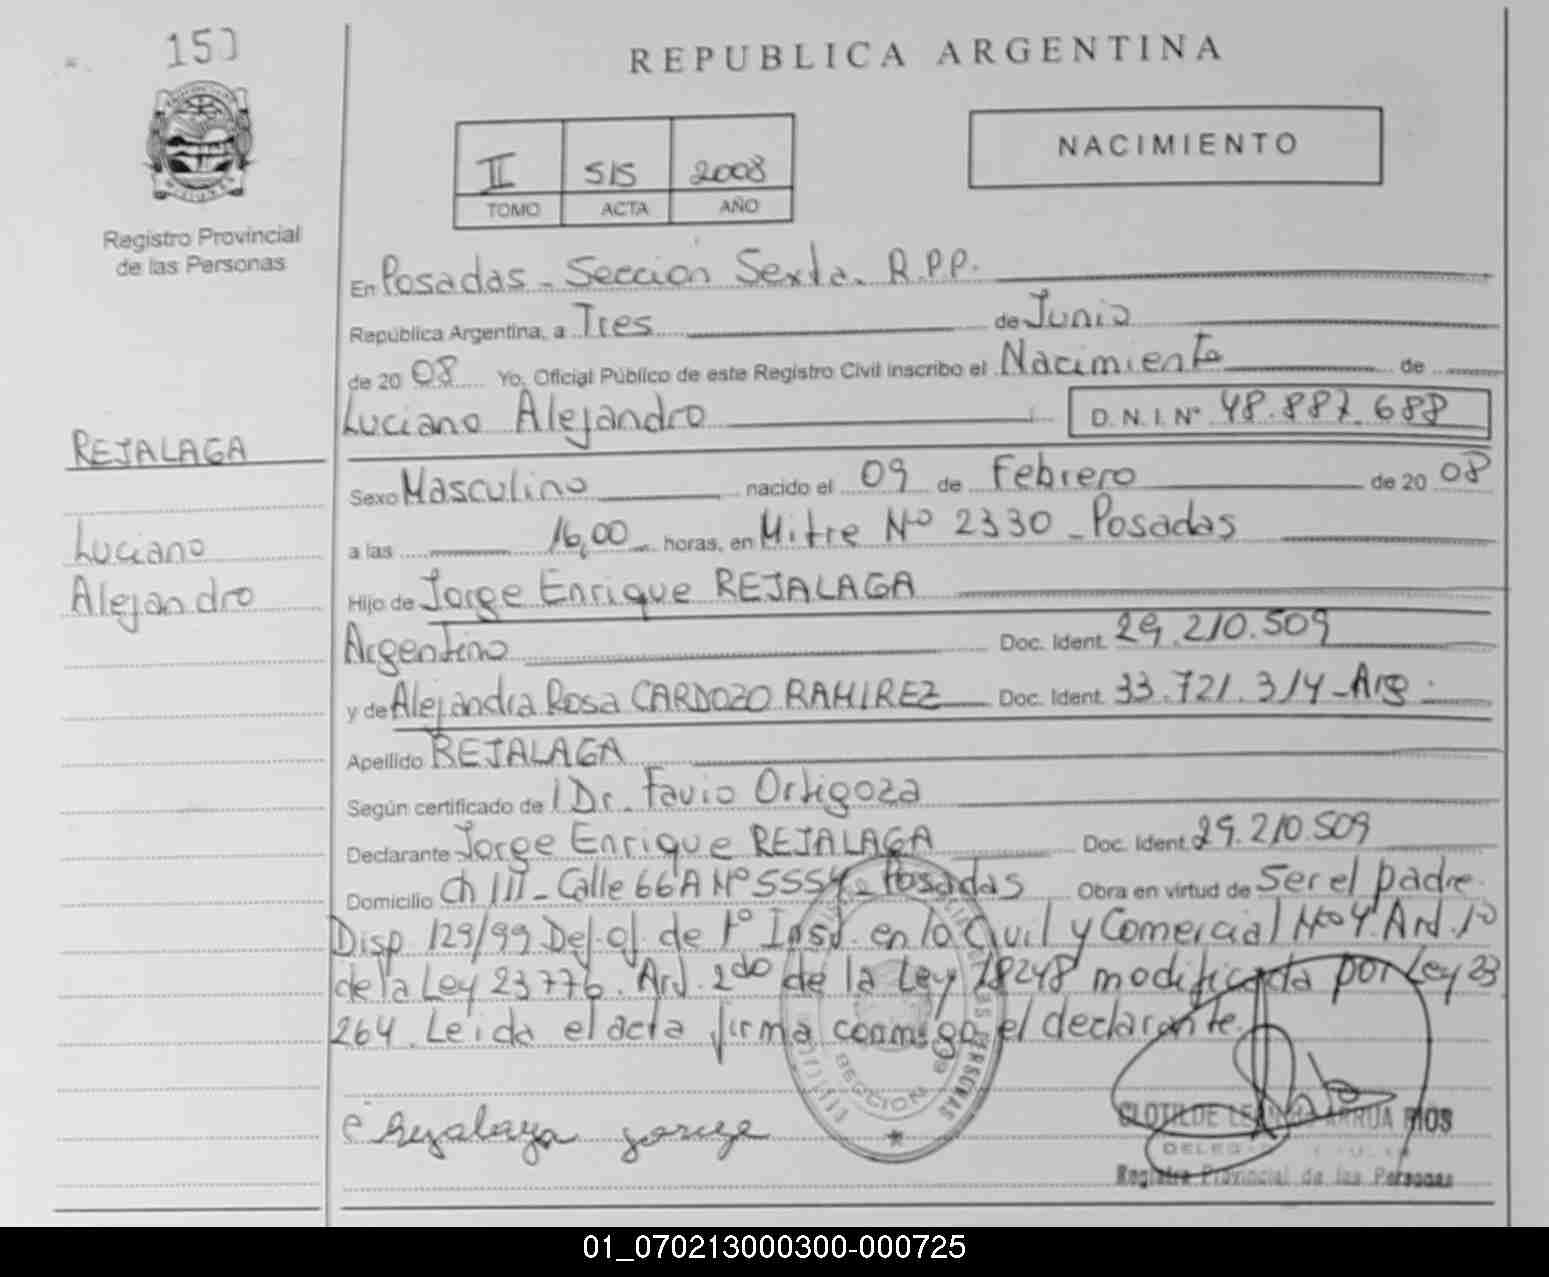 REPUBLICA ARGENTINA
NACIMIENTO
II 515 2008
TOMO ACTA AÑO
Registro Provincial
de las Personas
En Posadas - Sección Sexta. R.P.P.
República Argentina, a Tres de Junio
de 20 08 Yo, Oficial Público de este Registro Civil inscribo el Nacimiento de
Luciano Alejandro D.N.I. Nº 48.887.688
REJALAGA
Sexo Masculino nacido el 09 de Febrero de 20 08
Luciano
a las 16,00 horas, en Mitre Nº 2330 - Posadas
Alejandro
Hijo de Jorge Enrique REJALAGA
Argentino Doc. Ident. 29.210.509
y de Alejandra Rosa CARDOZO RAMIREZ Doc. Ident. 33.721.314 - Arg.
Apellido REJALAGA
Según certificado de Dr. Favio Ortigoza
Declarante Jorge Enrique REJALAGA Doc. Ident. 29.210.509
Domicilio Ch 111 - Calle 66A Nº 5554 - Posadas Obra en virtud de Ser el padre.
Disp 129/99 Def. of. de 1º Inst. en lo Civil y Comercial Nº 4. Art. 1º
de la Ley 23776. Art. 2do de la Ley 18248 modificada por Ley 23
264. Leida el acta firma conmigo el declarante.
SECCION 6
PERSONAS
Rejalaga Jorge
CLOTILDE ARRUA RIOS
Registro Provincial de las Personas
01_070213000300-000725